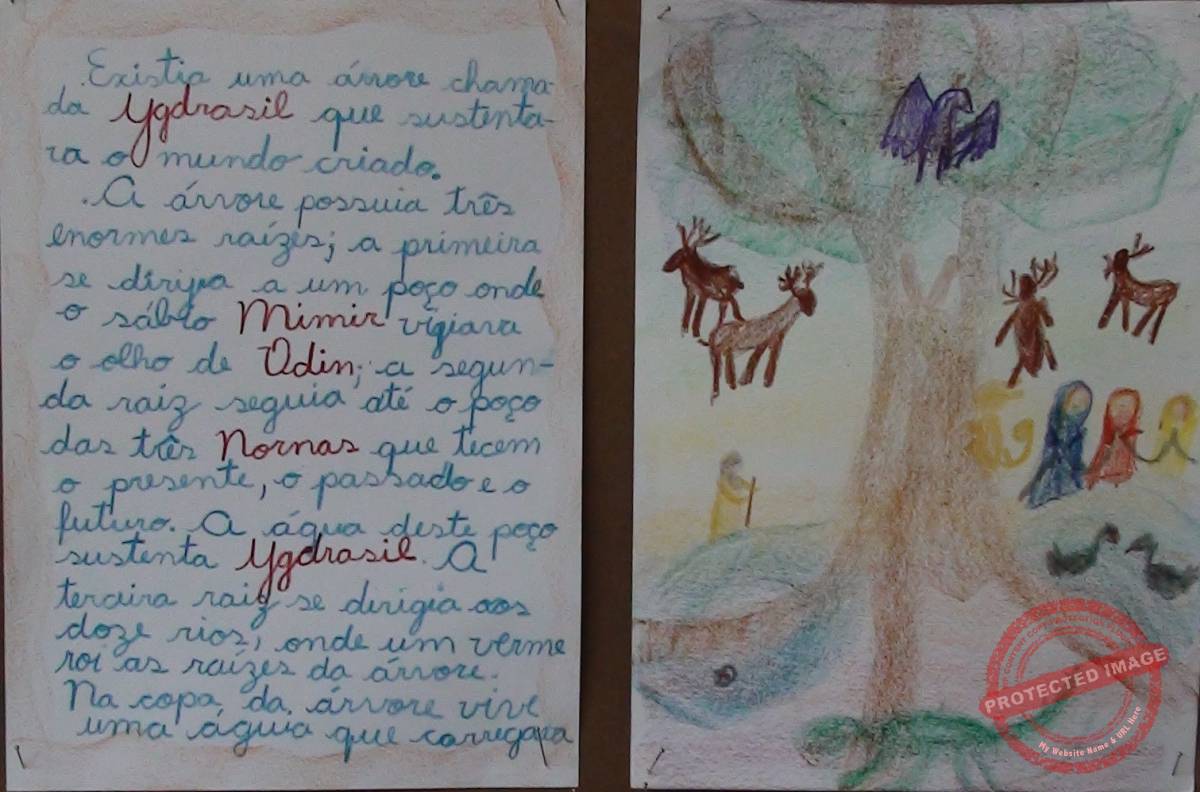 Existia uma árvore chama-
da Ygdrasil que sustenta-
va o mundo criado.
A árvore possuia três
enormes raízes; a primeira
se dirigia a um poço onde
o sábio Mimir vigiava
o olho de Odin; a segun-
da raiz seguia até o poço
das três Nornas que tecem
o presente, o passado e o
futuro. A água deste poço
sustenta Ygdrasil. A
terceira raiz se dirigia aos
doze rios, onde um verme
roi as raízes da árvore.
Na copa da árvore vive
uma águia que carregava
PROTECTED IMAGE
My Website Name & URL Here